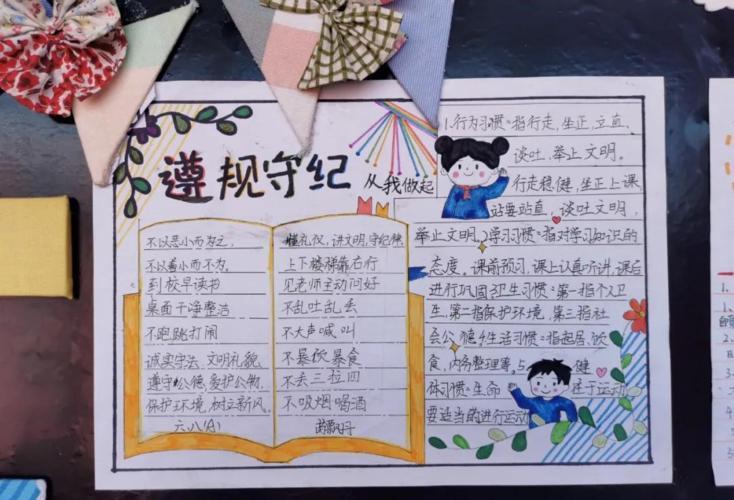 遵规守纪
从我做起
不以恶小而为之,
不以善小而不为。
到校早读书
桌面干净整洁
不跑跳打闹
诚实守法,文明礼貌,
遵守公德,爱护公物,
保护环境,树立新风。
六、八
懂礼仪,讲文明,守纪律
上下楼梯靠右行
见老师主动问好
不乱吐乱丢
不大声喊叫
不暴饮暴食
不丢三拉四
不吸烟喝酒
1.行为习惯:指行走,坐正,立直,
谈吐,举止文明。
行走稳健,坐正上课
站要站直,谈吐文明,
举止文明。2学习习惯:指对学习知识的
态度,课前预习,课上认真听讲,课后
进行巩固。3卫生习惯:第一指个人卫
生,第二指保护环境,第三指社
会公德。4生活习惯:指起居,饮
食,内务整理等。5健
体习惯:生命在于运动
要适当的进行运动